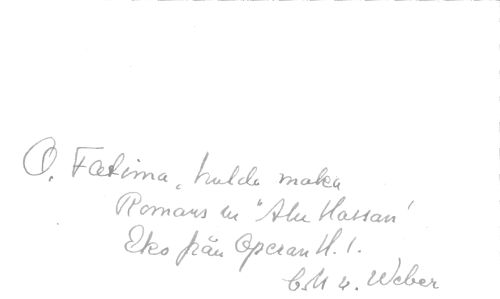 O, Fatima, hulda maka
Romans ur "Abu Hassan"
Eko från Operan H. 1.
C.M v. Weber